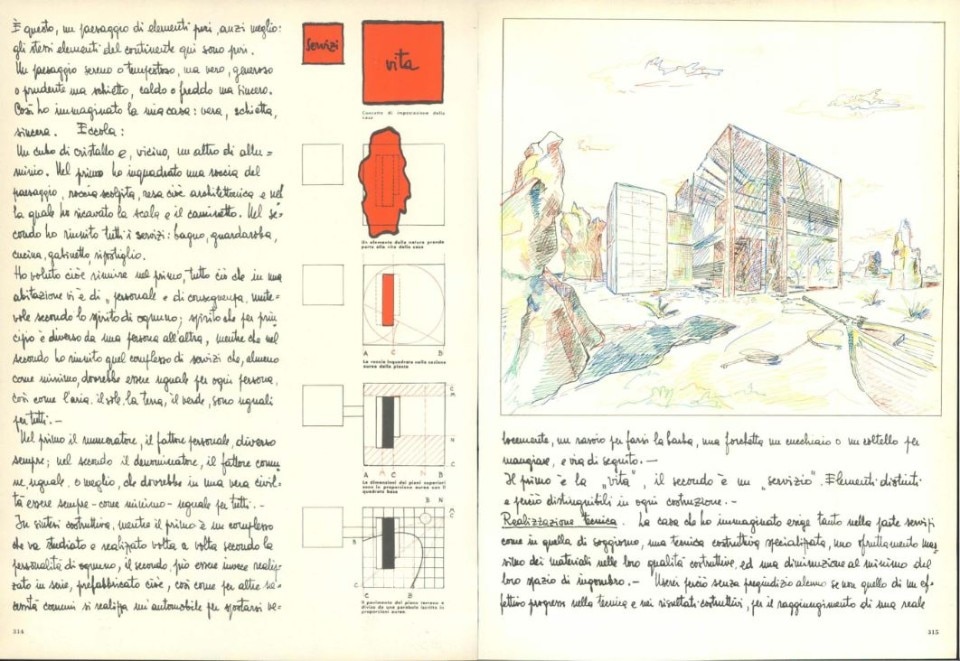 È questo, un paesaggio di elementi puri, anzi meglio:
gli stessi elementi del continente qui sono puri.
Un paesaggio sereno o tempestoso, ma vero, generoso
o prudente ma schietto, caldo o freddo ma sincero.
Così ho immaginato la mia casa: vera, schietta,
sincera. Eccola:
Un cubo di cristallo e, vicino, un altro di allu=
minio. Nel primo ho inquadrato una roccia del
paesaggio, roccia scolpita, resa cioè architettonica e nel
la quale ho ricavato la scala e il caminetto. Nel se=
condo ho riunito tutti i servizi: bagno, guardaroba,
cucina, gabinetto, ripostiglio.
Ho voluto cioè riunire nel primo, tutto ciò che in una
abitazione vi è di "personale e di conseguenza mute=
vole secondo lo spirito di ognuno; spirito che per prin
cipio è diverso da una persona all'altra, mentre che nel
secondo ho riunito quel complesso di servizi che, almeno
come minimo, dovrebbe essere uguale per ogni persona,
così come l'aria, il sole, la terra, il verde, sono uguali
per tutti. -
Nel primo il numeratore, il fattore personale, diverso
sempre; nel secondo il denominatore, il fattore comu
ne, uguale. o meglio, che dovrebbe in una vera civil=
tà essere sempre - come minimo - uguale per tutti. -
In sintesi costruttiva, mentre il primo è un complesso
che va studiato e realizzato volta a volta secondo la
personalità di ognuno, il secondo, può essere invece realiz=
zato in serie, prefabbricato cioè, così come per altre ne=
cessità comuni si realizza un'automobile per spostarsi ve=
314
servizi
vita
Concetto di impostazione della
casa
Un elemento della natura prende
parte alla vita della casa
A C B
La roccia inquadrata nella sezione
aurea della pianta
A C B
Le dimensioni dei piani superiori
sono in proporzione aurea con il
quadrato base
B N
C B
Il pavimento del piano terreno è
diviso da una parabola iscritta in
proporzioni auree
locemente, un rasoio per farsi la barba, una forchetta un cucchiaio o un coltello per
mangiare, e via di seguito. -
Il primo è la "vita", il secondo è un "servizio". Elementi distinti
e perciò distinguibili in ogni costruzione. -
Realizzazione tecnica. La casa che ho immaginato esige tanto nella parte servizi
come in quella di soggiorno, una tecnica costruttiva specializzata, uno sfruttamento mas
simo dei materiali nelle loro qualità costruttive, ed una diminuzione al minimo del
loro spazio di ingombro. - Userei perciò senza pregiudizio alcuno se non quello di un ef=
fettivo progresso nella tecnica e nei risultati costruttivi, per il raggiungimento di una reale
315